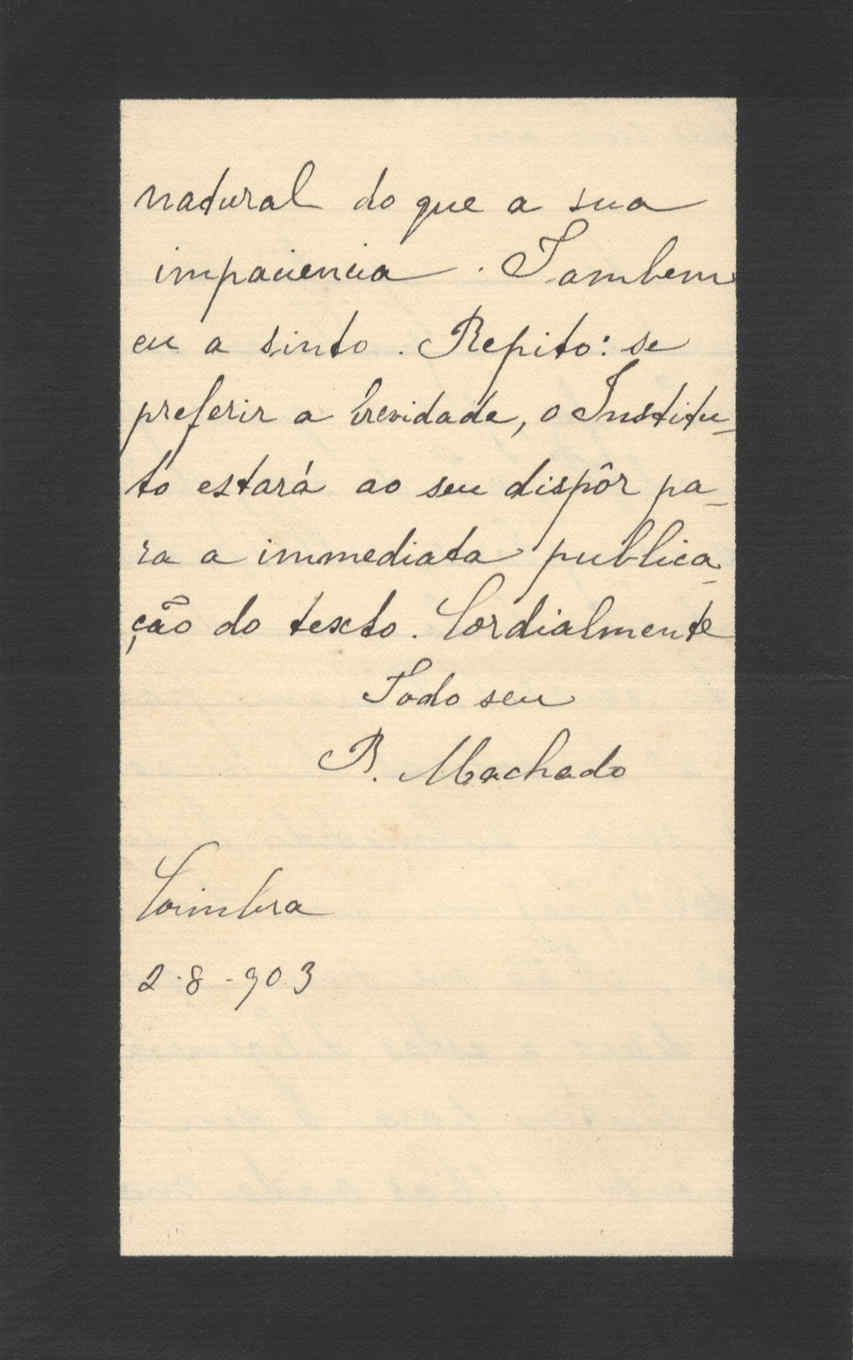 natural do que a sua
impaciencia. Tambem
eu a sinto. Repito: se
preferir a brevidade, o Institu-
to estará ao seu dispôr pa-
ra a immediata publica-
ção do texto. Cordialmente
Todo seu
B. Machado
Coimbra
2-8-903